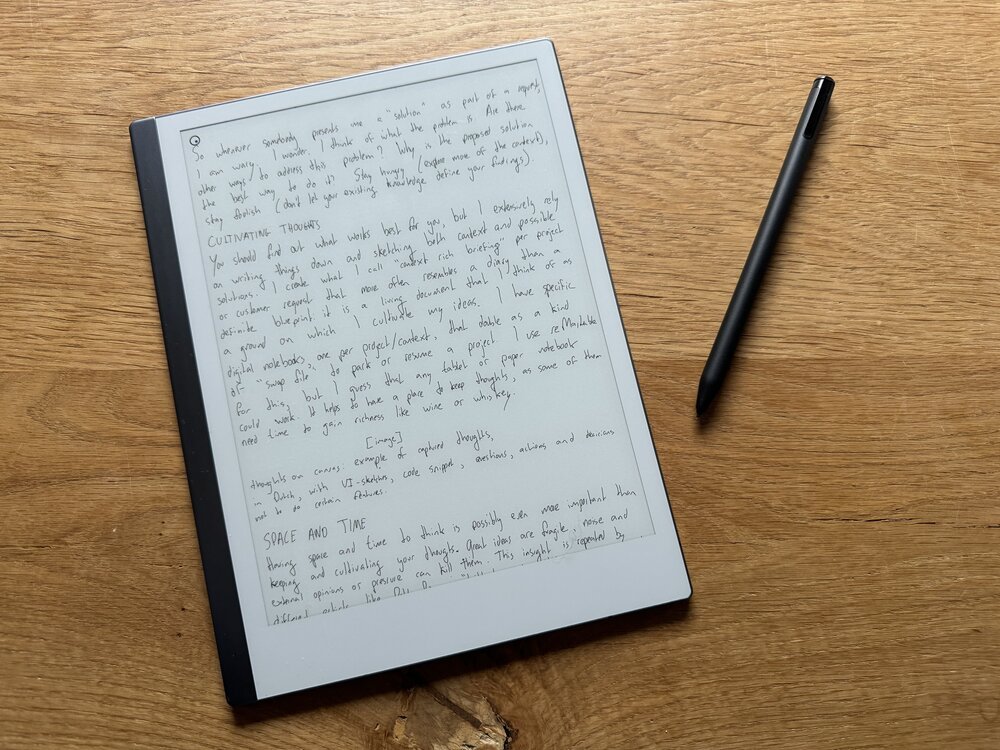 So whenever somebody presents me a "solution" as part of a request,
I am wary. I wonder. I think of what the problem is. Are there
other ways to address this problem? Why is the proposed solution
the best way to do it? Stay hungry (explore more of the context),
stay foolish (don't let your existing knowledge define your findings).
CULTIVATING THOUGHTS
You should find out what works best for you, but I extensively rely
on writing things down and sketching both context and possible
solutions. I create what I call "context rich briefing" per project
or customer request that more often resembles a diary than a
definite blueprint it is a living document that I think of as
a ground on which I cultivate my ideas. I have specific
digital notebooks, one per project/context, that double as a kind
of "swap file" to park or resume a project. I use reMarkable
for this, but I guess that any tablet or paper notebook
could work. It helps to have a place to keep thoughts, as some of them
need time to gain richness like wine or whiskey.
[image]
thoughts on canvas: example of captured thoughts,
in Dutch, with UI-sketches, code snippet, questions, actions and decisions
not to do certain features.
SPACE AND TIME
Having space and time to think is possibly even more important than
keeping and cultivating your thougts. Great ideas are fragile, noise and
external opinions or pressure can kill them. This insight is repeated by
different